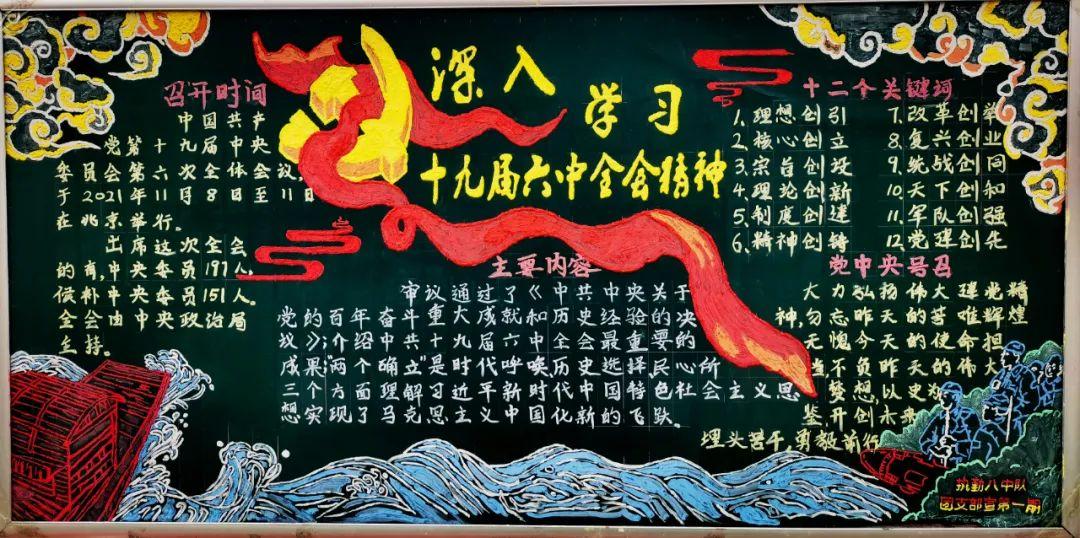 深入
学习
十九届六中全会精神
召开时间
中国共产
党第十九届中央
委员会第六次全体会议,
于2021年11月8日至11日
在北京举行。
出席这次全会
的有,中央委员197人,
候补中央委员151人。
全会由中央政治局
主持。
主要内容
审议通过了《中共中央关于
党的百年奋斗重大成就和历史经验的决
议》;介绍中共十九届六中全会最重要的
成果;"两个确立"是时代呼唤历史选择民心所
三个方面理解习近平新时代中国特色社会主义思
想实现了马克思主义中国化新的飞跃。
十二个关键词
1.理想创引 7.改革创举
2.核心创立 8.复兴创业
3.宗旨创设 9.统战创同
4.理论创新 10.天下创和
5.制度创建 11.军队创强
6.精神创铸 12.党建创先
党中央号召
大力弘扬伟大建党精
神,勿忘昨天的苦难辉煌
无愧今天的使命担
当不负昨天的伟大
梦想,以史为
鉴开创未来
埋头苦干,勇毅前行
执勤八中队
团支部宣第一期